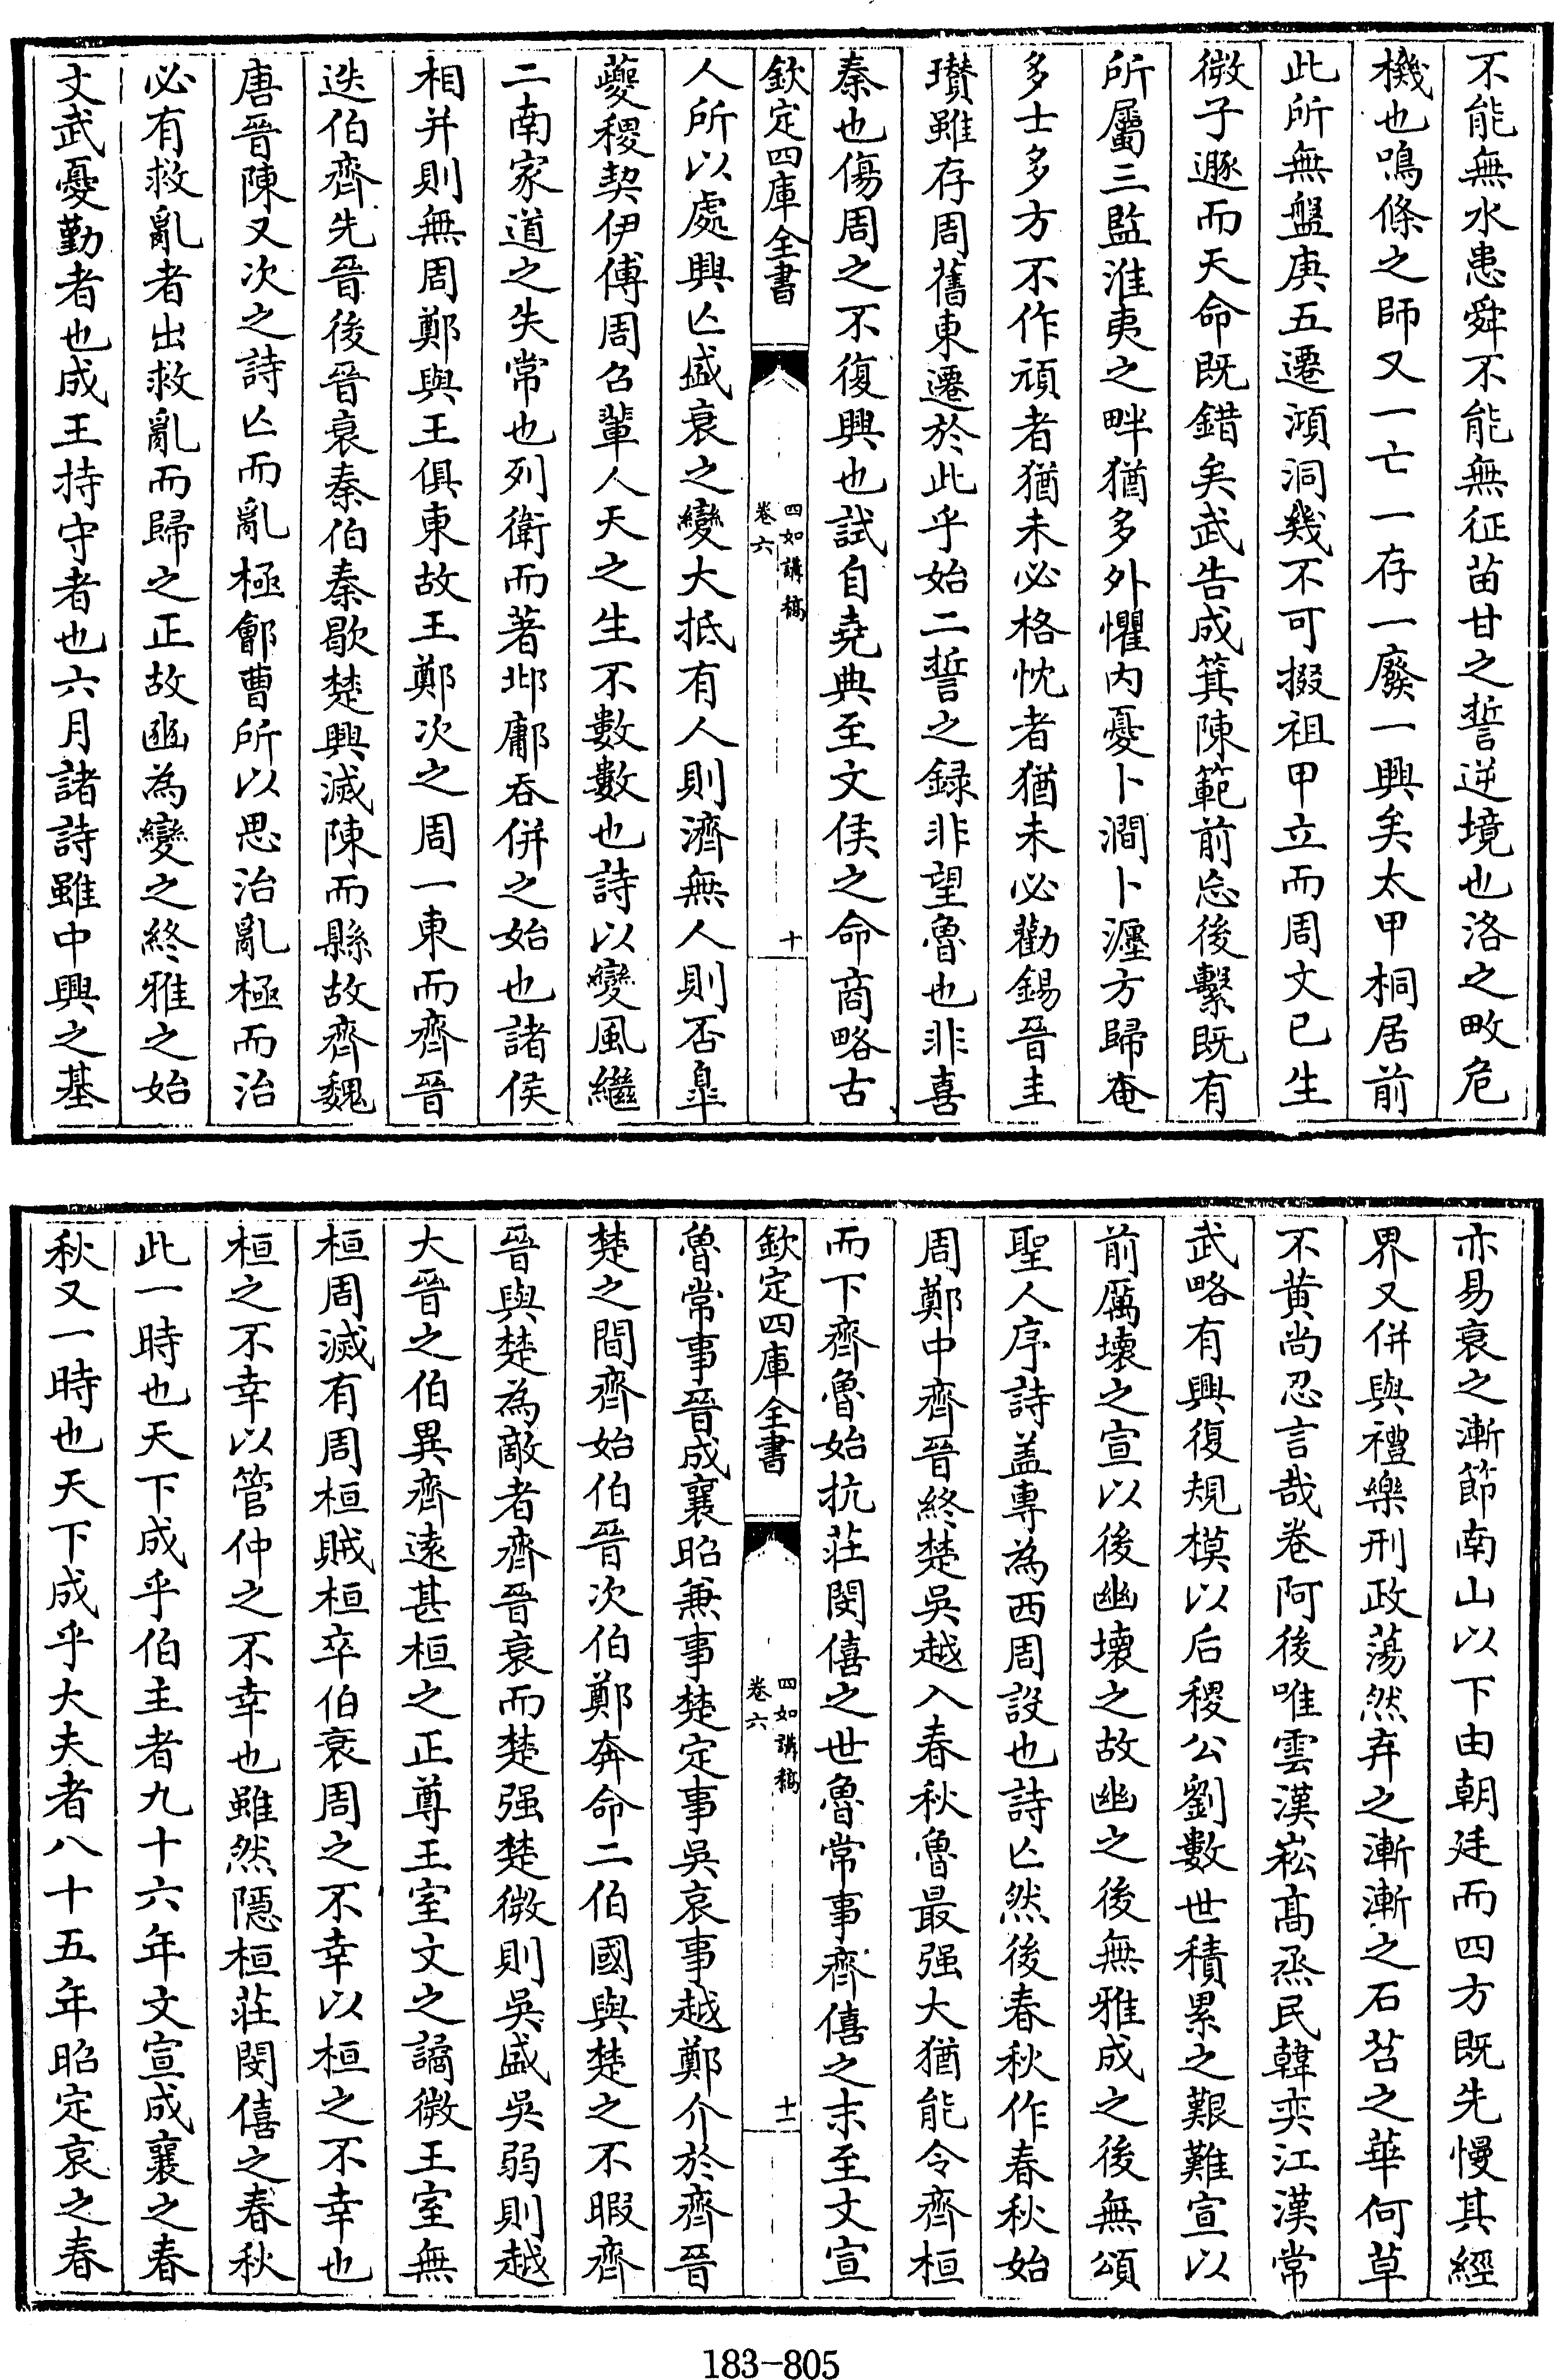 不能無水患舜不能無征苗甘之誓逆境也洛之畋危
機也鳴條之師又一亡一存一廢一興矣太甲桐居前
此所無盤庚五遷澒洞幾不可掇祖甲立而周文已生
微子遯而天命既錯矣武告成箕陳範前忘後繫既有
所屬三監淮夷之畔猶多外懼内憂卜澗卜瀍方歸奄
多士多方不作頑者猶未必格忱者猶未必勸錫晉圭
瓚雖存周舊東遷於此乎始二誓之録非望魯也非喜
秦也傷周之不復興也試自堯典至文侯之命商略古
欽定四庫全書
四如講稿
卷六
十
人所以處興亾盛衰之變大抵有人則濟無人則否臯
夔稷契伊傅周召輩人天之生不數數也詩以變風繼
二南家道之失常也列衛而著邶鄘吞併之始也諸侯
相并則無周鄭與王俱東故王鄭次之周一東而齊晉
迭伯齊先晉後晉衰秦伯秦歇楚興滅陳而縣故齊魏
唐晉陳又次之詩亾而亂極鄶曹所以思治亂極而治
必有救亂者出救亂而歸之正故豳為變之終雅之始
文武憂勤者也成王持守者也六月諸詩雖中興之基
亦易衰之漸節南山以下由朝廷而四方既先慢其經
界又併與禮樂刑政蕩然弃之漸漸之石苕之華何草
不黄尚忍言哉卷阿後唯雲漢崧高烝民韓奕江漢常
武略有興復規模以后稷公劉數世積累之艱難宣以
前厲壞之宣以後幽壞之故幽之後無雅成之後無頌
聖人序詩盖専為西周設也詩亾然後春秋作春秋始
周鄭中齊晉終楚吳越入春秋魯最强大猶能令齊桓
而下齊魯始抗莊閔僖之世魯常事齊僖之末至文宣
欽定四庫全書
四如講稿
卷六
十一
魯常事晉成襄昭兼事楚定事吳哀事越鄭介於齊晉
楚之間齊始伯晉次伯鄭奔命二伯國與楚之不暇齊
晉與楚為敵者齊晉衰而楚强楚微則吳盛吳弱則越
大晉之伯異齊遠甚桓之正尊王室文之譎微王室無
桓周滅有周桓賊桓卒伯衰周之不幸以桓之不幸也
桓之不幸以管仲之不幸也雖然隱桓莊閔僖之春秋
此一時也天下成乎伯主者九十六年文宣成襄之春
秋又一時也天下成乎大夫者八十五年昭定哀之春
183-805